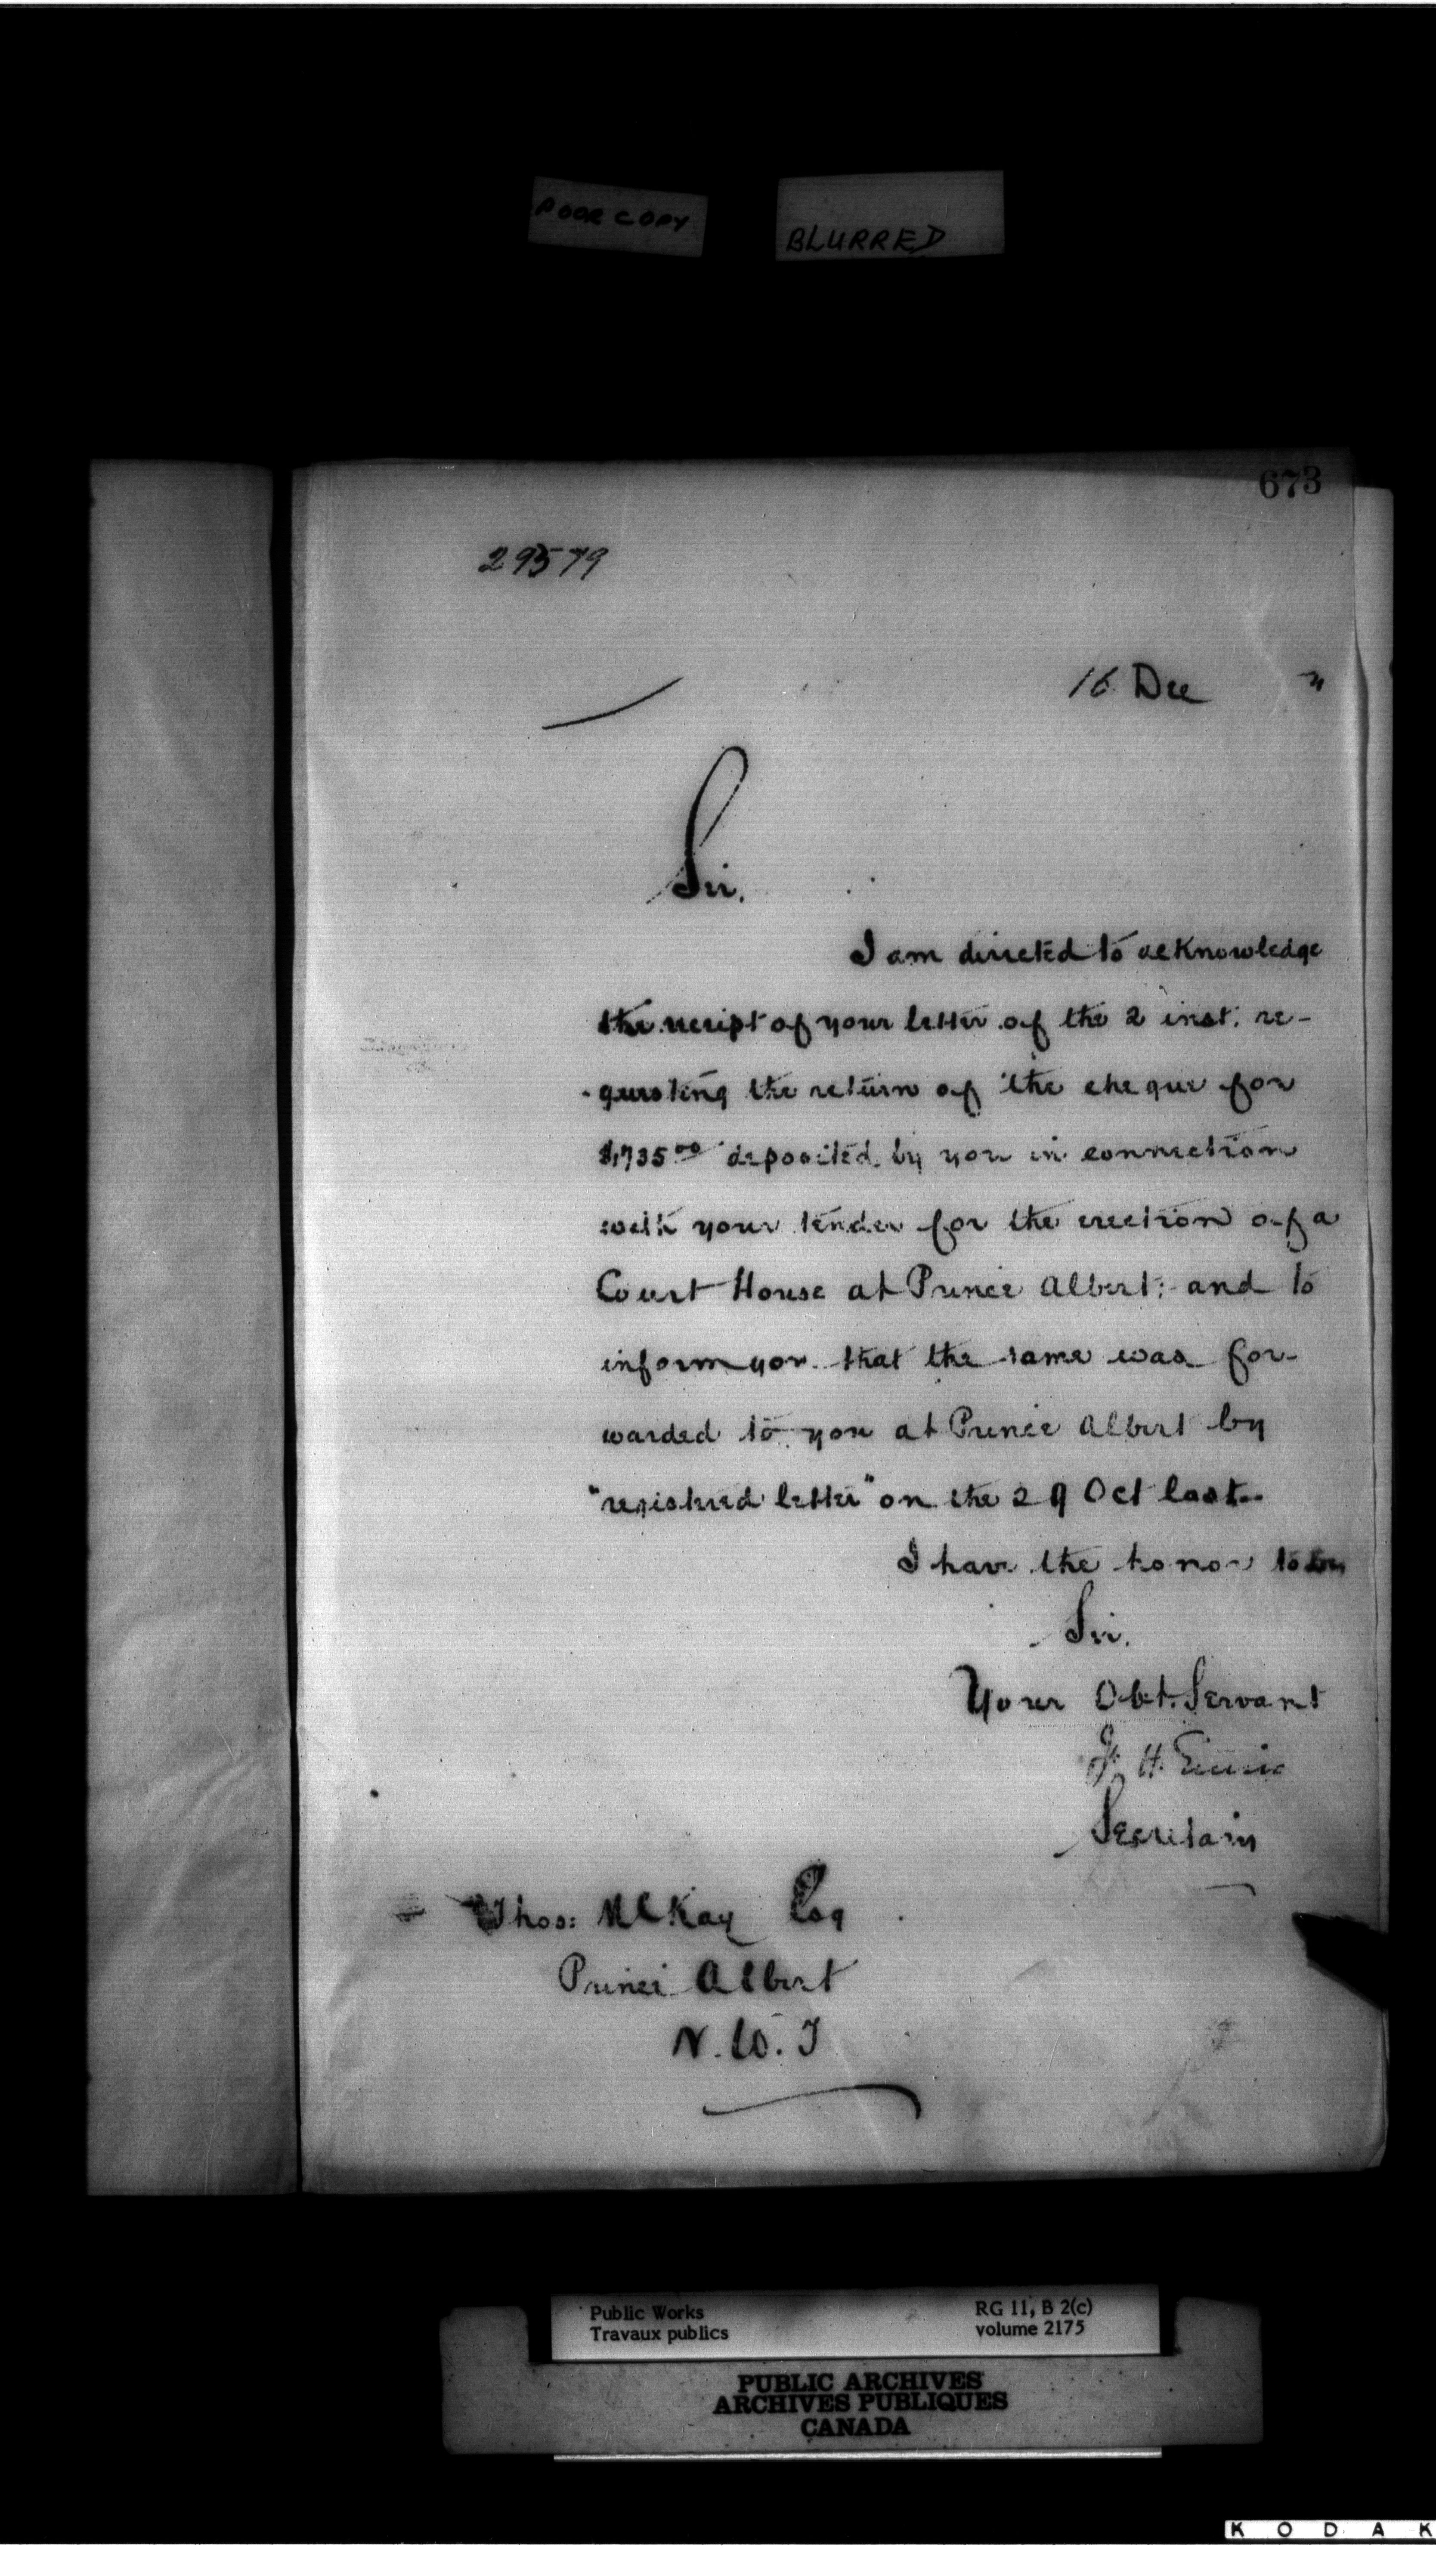 POOR COPY
BLURRED
673
29579
16 Dec "
Sir.
I am directed to acknowledge
the receipt of your letter of the 2 inst. re-
-questing the return of the cheque for
deposited by you in connection
with your tender for the erection of a
Court House at Prince Albert; and to
inform you that the same was for-
warded to you at Prince Albert by
"registered letter" on the 29 Oct last.
I have the honor to be
Sir.
Your Obt. Servant
Secretary
Thos: McKay Esq
Prince Albert
N.W.T
Public Works
Travaux publics
RG 11, B 2(c)
volume 2175
PUBLIC ARCHIVES
ARCHIVES PUBLIQUES
CANADA
KODAK